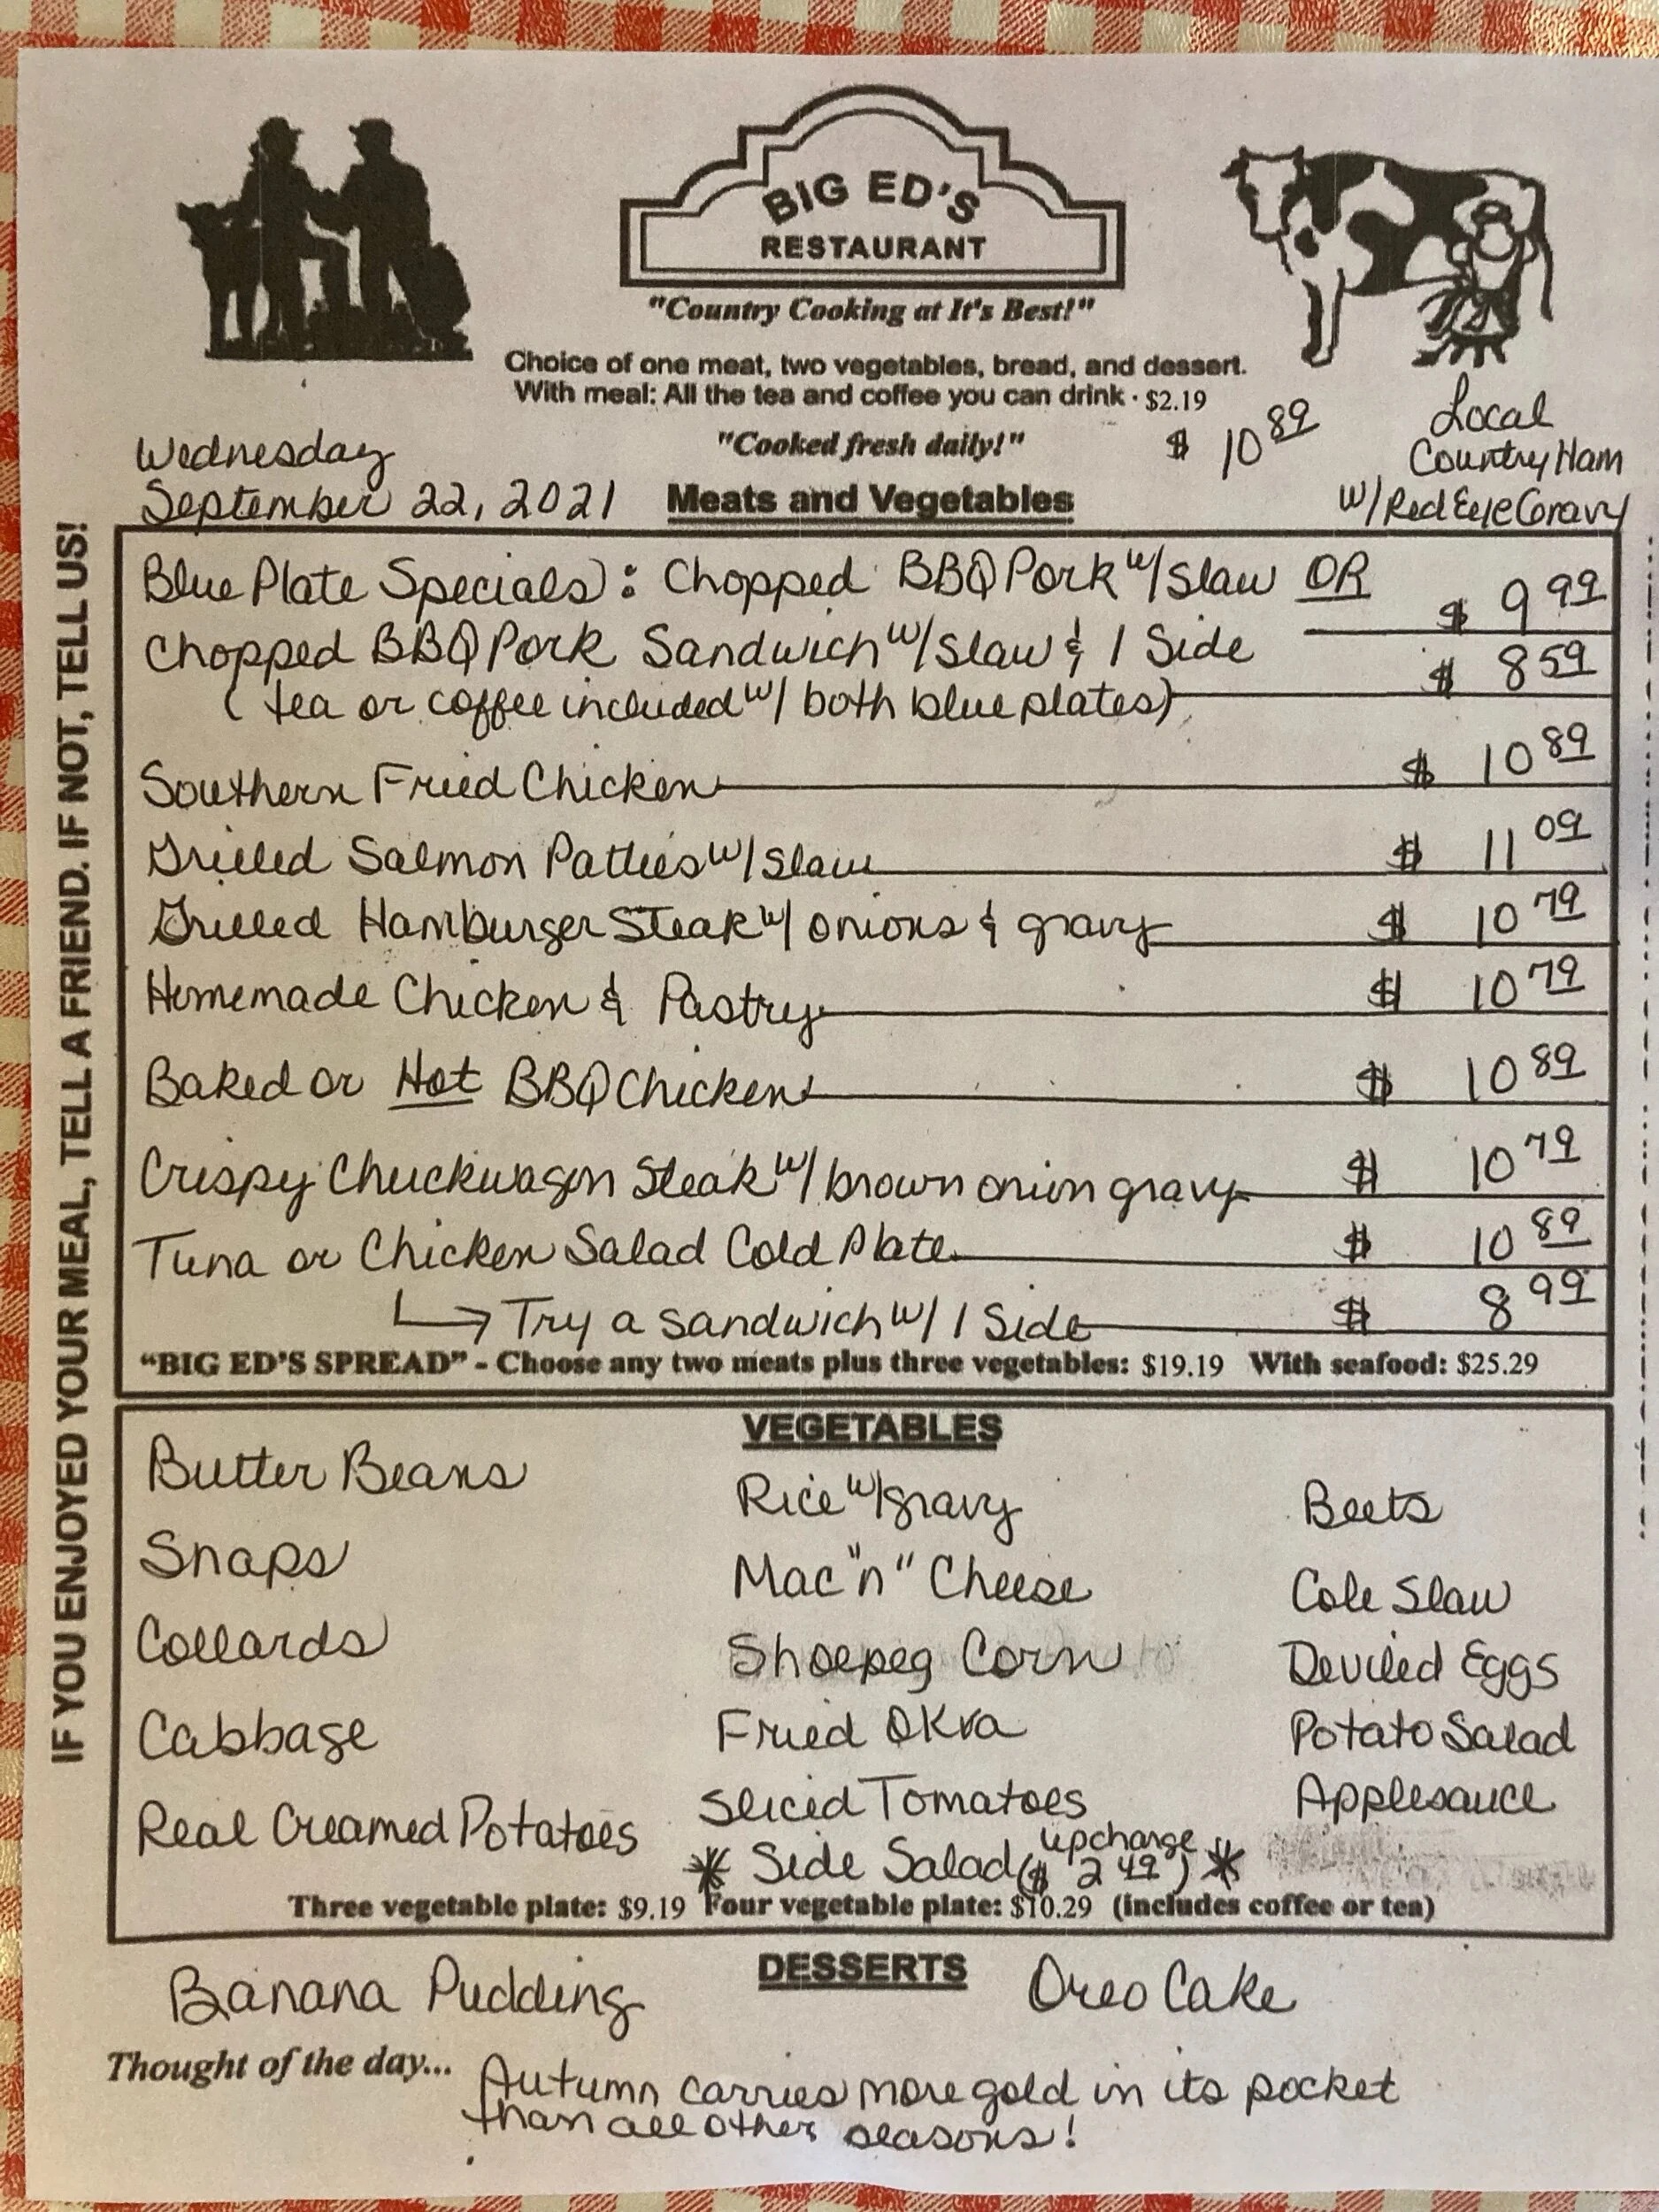 BIG ED'S
RESTAURANT
"Country Cooking at It's Best!"
Choice of one meat, two vegetables, bread, and dessert.
With meal: All the tea and coffee you can drink · $2.19
"Cooked fresh daily!"
$ 10 89
Local
Country Ham
w/ Red Eye Gravy
Wednesday
September 22, 2021
Meats and Vegetables
IF YOU ENJOYED YOUR MEAL, TELL A FRIEND. IF NOT, TELL US!
Blue Plate Specials: Chopped BBQ Pork w/ Slaw OR $ 9 99
Chopped BBQ Pork Sandwich w/ Slaw & 1 Side $ 8 59
(tea or coffee included w/ both blue plates)
Southern Fried Chicken $ 10 89
Grilled Salmon Patties w/ Slaw $ 11 09
Grilled Hamburger Steak w/ onions & gravy $ 10 79
Homemade Chicken & Pastry $ 10 79
Baked or Hot BBQ Chicken $ 10 89
Crispy Chuckwagon Steak w/ brown onion gravy $ 10 79
Tuna or Chicken Salad Cold Plate $ 10 89
Try a sandwich w/ 1 Side $ 8 99
"BIG ED'S SPREAD" - Choose any two meats plus three vegetables: $19.19 With seafood: $25.29
VEGETABLES
Butter Beans
Snaps
Collards
Cabbage
Real Creamed Potatoes
Rice w/ gravy
Mac "n" Cheese
Shoepeg Corn
Fried Okra
Sliced Tomatoes
* Side Salad ($ 2 49) upcharge *
Beets
Cole Slaw
Deviled Eggs
Potato Salad
Applesauce
Three vegetable plate: $9.19 Four vegetable plate: $10.29 (includes coffee or tea)
DESSERTS
Banana Pudding
Oreo Cake
Thought of the day... Autumn carries more gold in its pocket
than all other seasons!